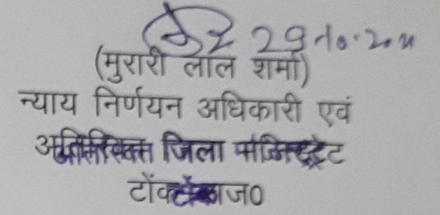 29-10-20
(मुरारी लाल शर्मा)
न्याय निर्णयन अधिकारी एवं
अतिरिक्त जिला मजिस्ट्रेट
टोंक राज0